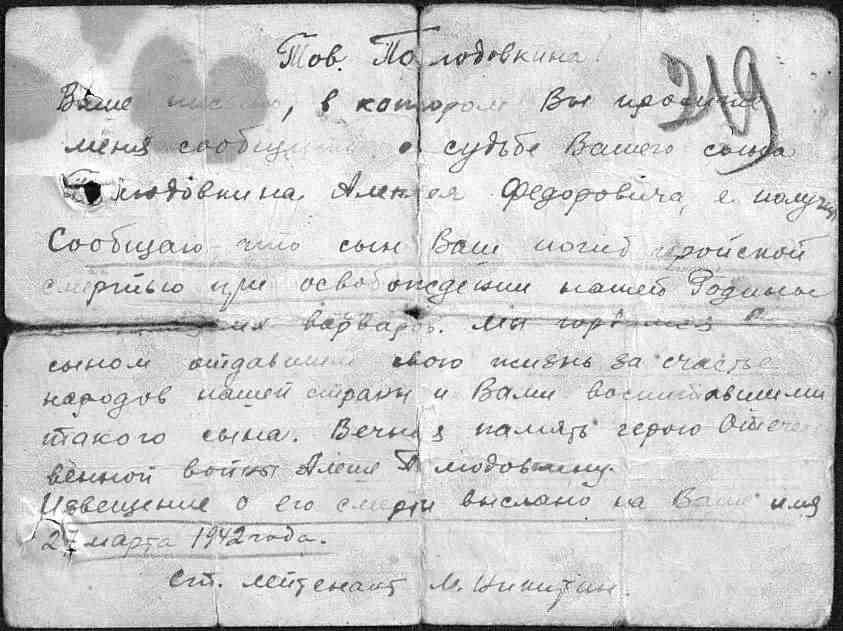 Тов. Полюдовкина!
219
Ваше письмо, в котором Вы просите
меня сообщить о судьбе Вашего сына
Полюдовкина Алексея Федоровича, я получил
Сообщаю что сын Ваш погиб геройской
смертью при освобождении нашей Родины
варваров. Мы гордимся
сыном отдавшим свою жизнь за счастье
народов нашей страны и Вами воспитавшими
такого сына. Вечная память герою Отечест
венной войны Алеше Полюдовкину.
Извещение о его смерти выслано на Ваше имя
27 марта 1942 года.
Ст. лейтенант М. Никитин.